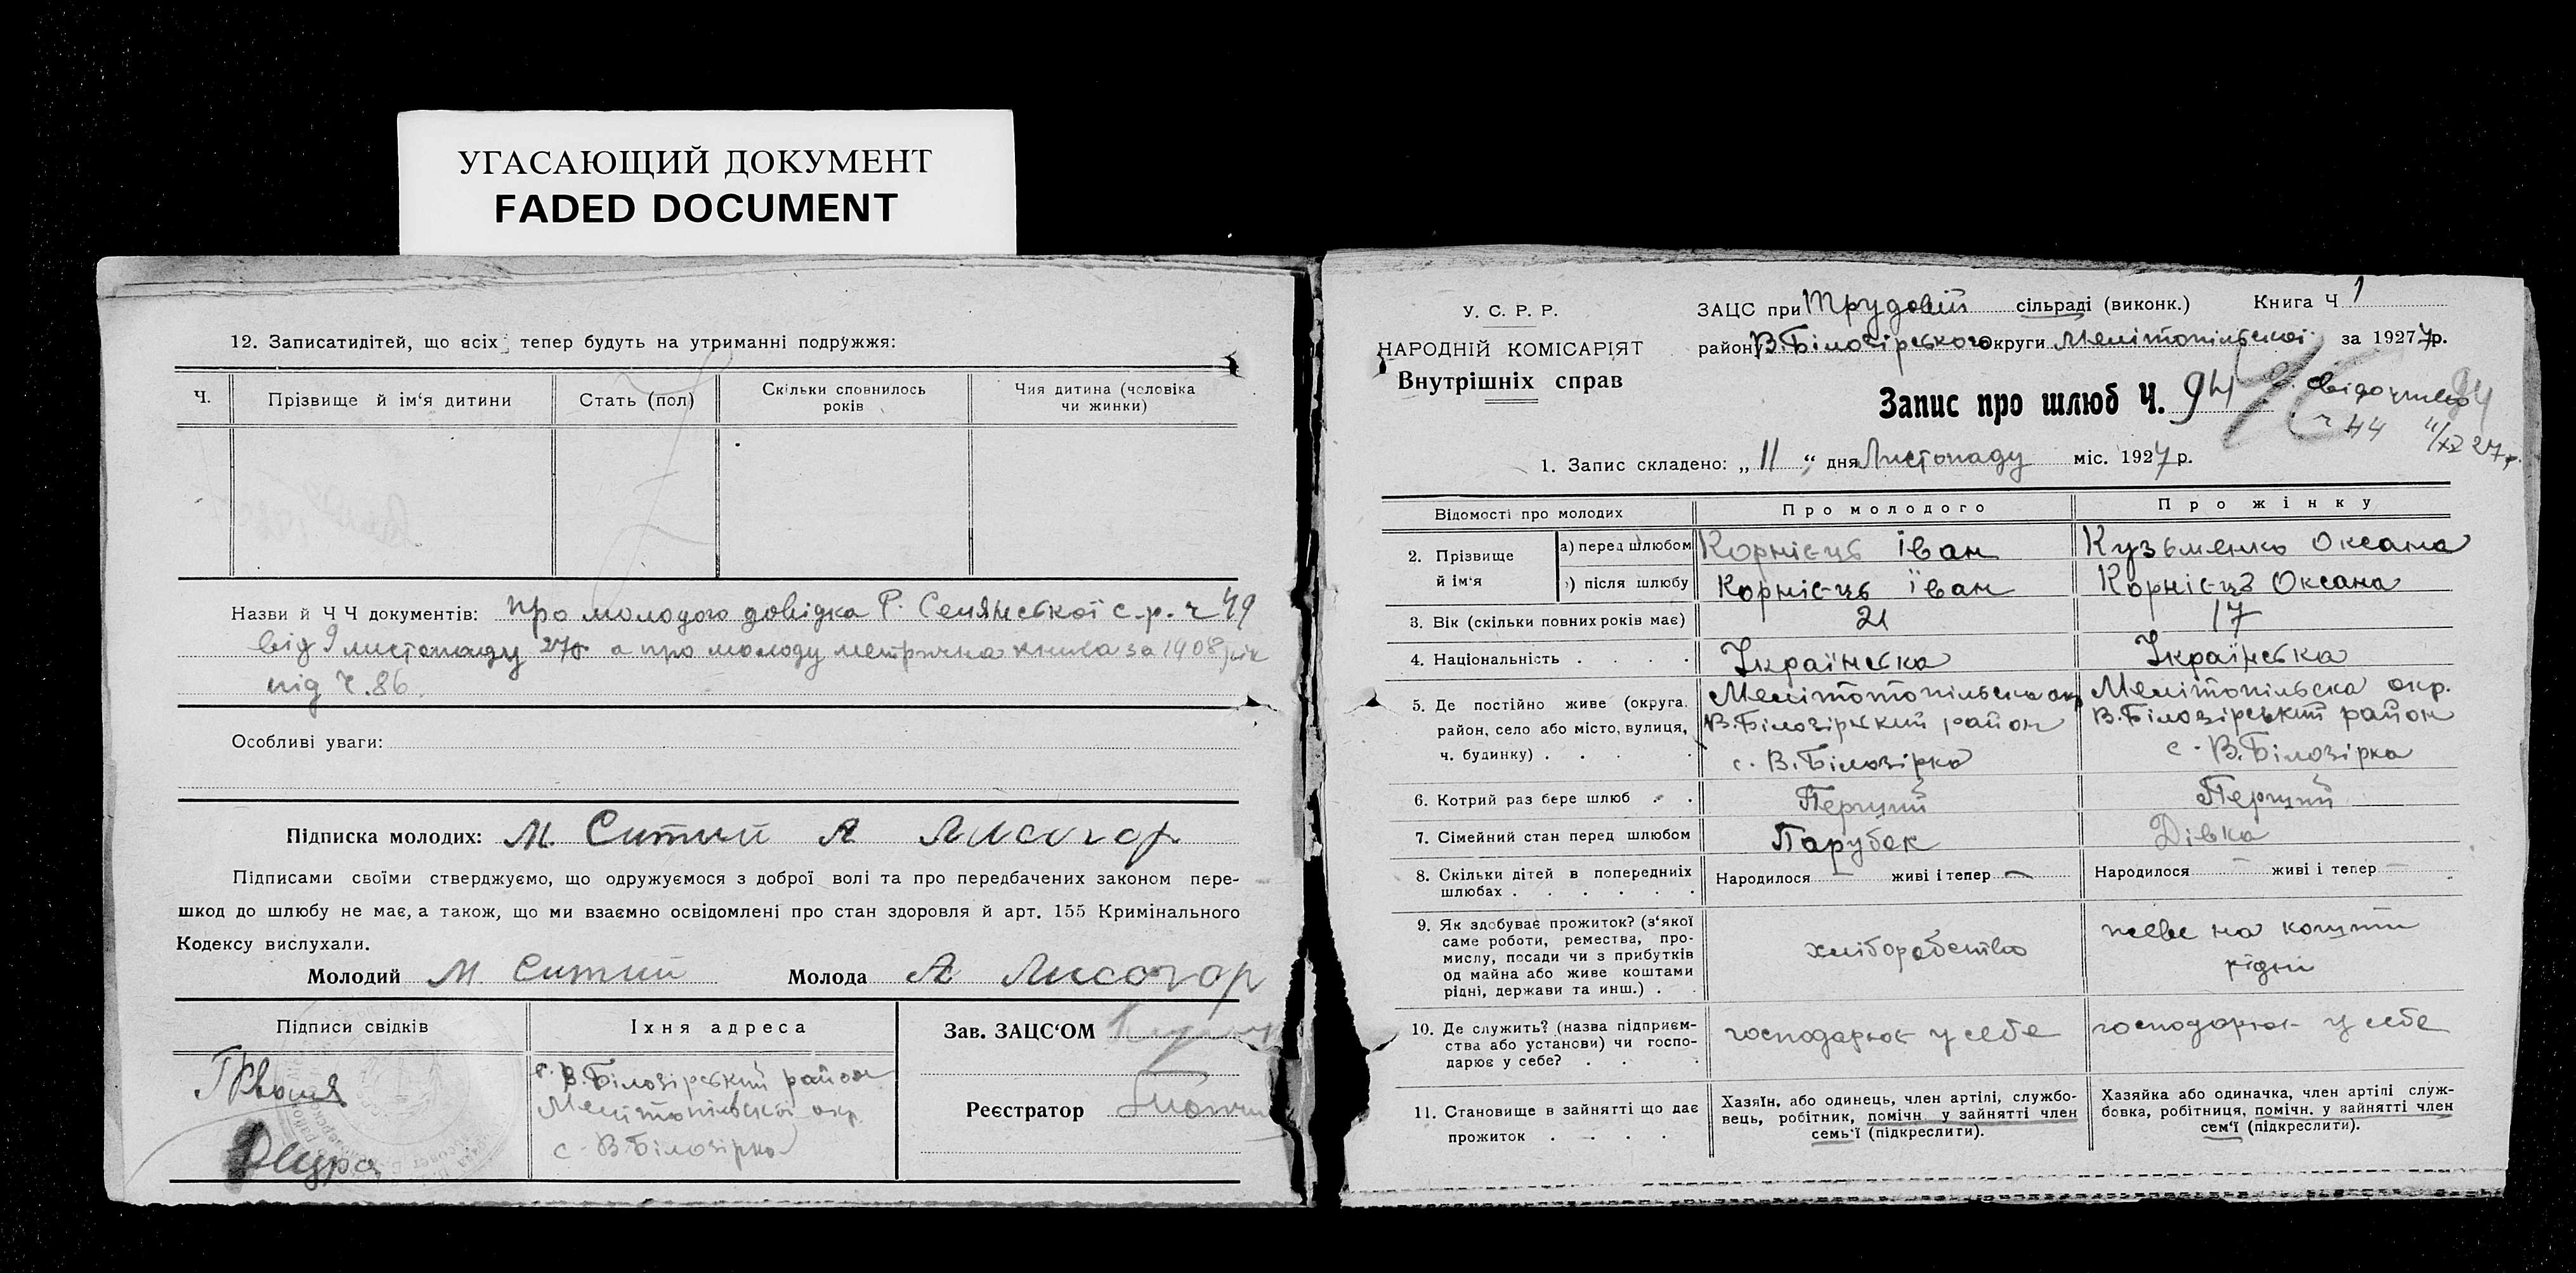 УГАСАЮЩИЙ ДОКУМЕНТ
FADED DOCUMENT
12. Записатидітей, що всіх тепер будуть на утриманні подружжя:
Ч. Прізвище й ім'я дитини Стать (пол) Скільки сповнилось років Чия дитина (чоловіка чи жинки)
Назви й Ч Ч документів: про молодого довідка Р. Сенянської с-р. ч 49
від 9 листопаду 27р а про молоду метрична книга за 1908 рік
під ч. 86.
Особливі уваги:
Підписка молодих: М. Ситий А Лисогор
Підписами своїми стверджуємо, що одружуємося з доброї волі та про передбачених законом пере-
шкод до шлюбу не має, а також, що ми взаємно освідомлені про стан здоровля й арт. 155 Кримінального
Кодексу вислухали.
Молодий М. Ситий Молода А Лисогор
Підписи свідків Їхня адреса Зав. ЗАЦС'ОМ
В.Білозірський район
Мелітопільської окр.
с. В Білозірка
Реєстратор
У. С. Р. Р.
НАРОДНІЙ КОМІСАРІЯТ
Внутрішніх справ
ЗАЦС при Трудовій сільраді (виконк.) Книга Ч 1
район В.Білозірського округи Мелітопільської за 1927 7р.
Запис про шлюб Ч. 94
свідоцтво
ч 44 11/XI 27р.
1. Запис складено: „ 11 “ дня Листопаду міс. 1927 р.
Відомості про молодих Про молодого Про жінку
2. Прізвище й ім'я а) перед шлюбом Корнієць Іван Кузьменко Оксана
) після шлюбу Корнієць Іван Корнієць Оксана
3. Вік (скільки повних років має) 21 17
4. Національність Українська Українська
5. Де постійно живе (округа, район, село або місто, вулиця, ч. будинку)
Мелітотопільска окр В.Білозірский район с. В.Білозірка
Мелітопільска окр. В.Білозірський район с. В.Білозірка
6. Котрий раз бере шлюб Перший Перший
7. Сімейний стан перед шлюбом Парубок Дівка
8. Скільки дітей в попередніх шлюбах Народилося — живі і тепер — Народилося — живі і тепер —
9. Як здобуває прожиток? (з'якої саме роботи, ремества, промислу, посади чи з прибутків од майна або живе коштами рідні, держави та инш.)
хліборобство
живе на кошти рідні
10. Де служить? (назва підприємства або установи) чи господарює у себе?
господарює у себе господарює у себе
11. Становище в зайнятті що дає прожиток
Хазяїн, або одинець, член артілі, службовець, робітник, помічн. у зайнятті член семь'ї (підкреслити).
Хазяйка або одиначка, член артілі службовка, робітниця, помічн. у зайнятті член сем'ї (підкреслити).